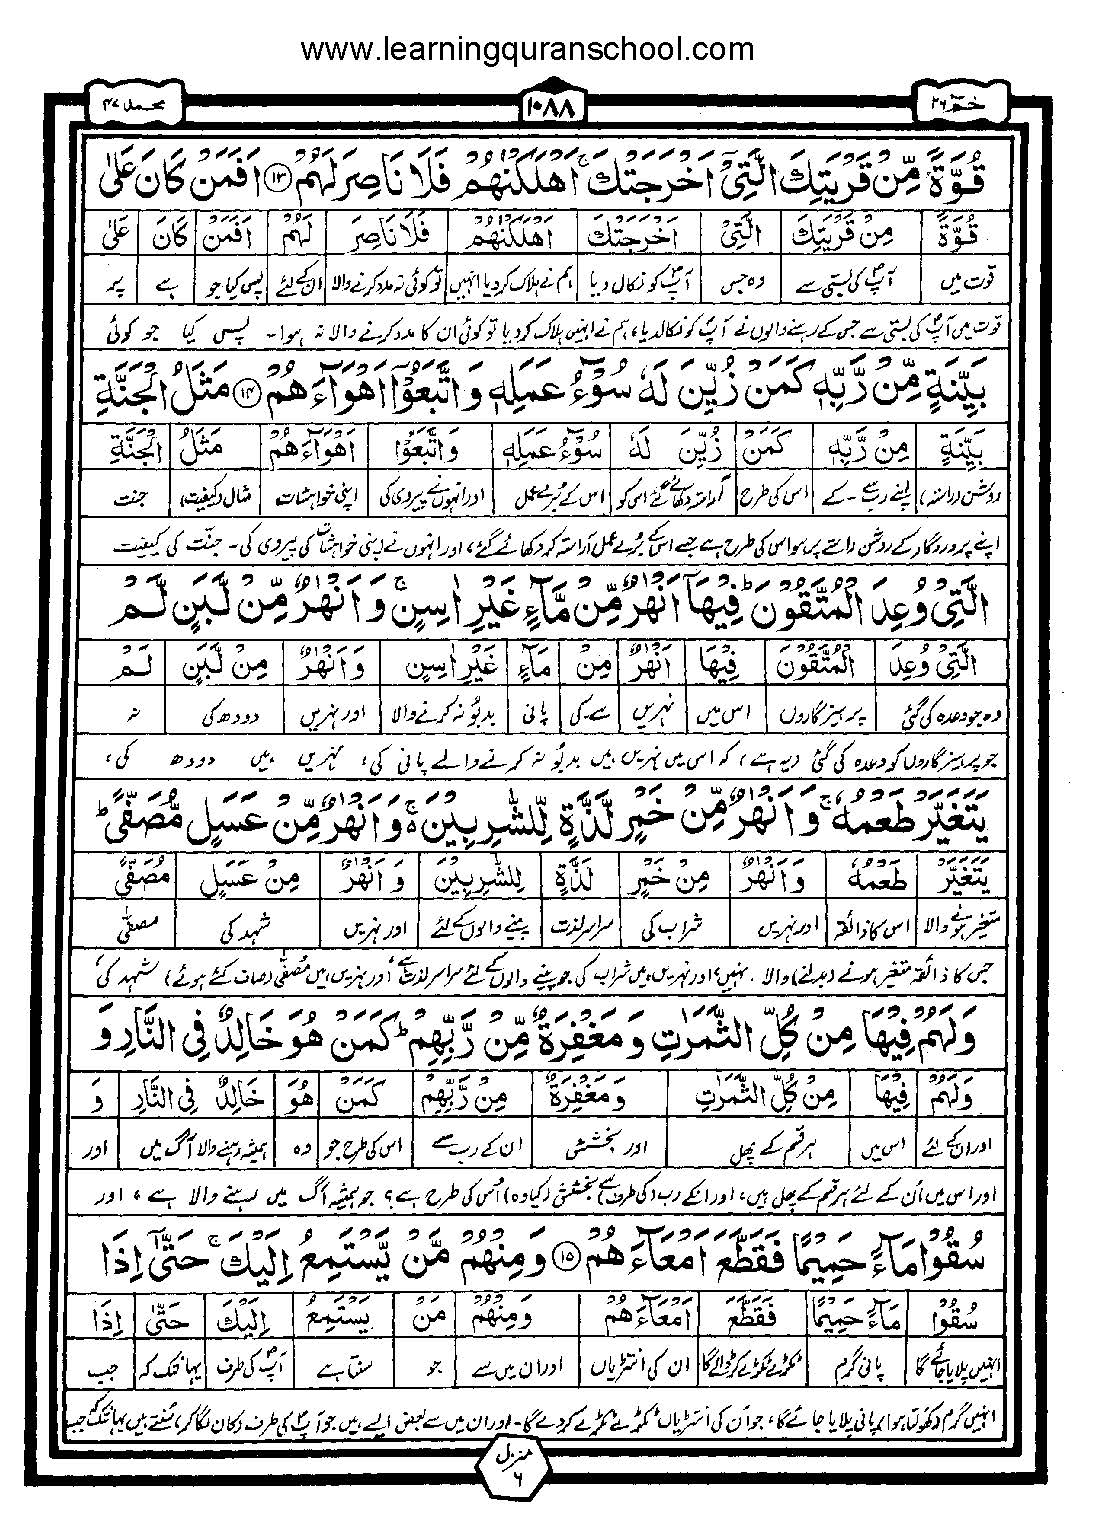 www.learningquranschool.com
محمد ۴۷
۱۰۸۸
حٰمٓ ۲۶
قُوَّةً مِّنْ قَرْيَتِكَ الَّتِيْٓ اَخْرَجَتْكَ ۚ اَهْلَكْنٰهُمْ فَلَا نَاصِرَ لَهُمْ ۝۱۳ اَفَمَنْ كَانَ عَلٰى
قُوَّةً مِنْ قَرْيَتِكَ الَّتِيْٓ اَخْرَجَتْكَ اَهْلَكْنٰهُمْ فَلَا نَاصِرَ لَهُمْ اَفَمَنْ كَانَ عَلٰى
قوت میں آپؐ کی بستی سے وہ جس آپؐ کو نکال دیا ہم نے ہلاک کر دیا انہیں تو کوئی نہ مدد کرنے والا ان کے لئے پس کیا جو ہے پر
قوت میں آپؐ کی بستی سے جس کے رہنے والوں نے آپؐ کو نکالدیا، ہم نے انہیں ہلاک کر دیا تو کوئی ان کا مدد کرنے والا نہ ہوا۔ پس کیا جو کوئی
بَيِّنَةٍ مِّنْ رَّبِّهٖ كَمَنْ زُيِّنَ لَهٗ سُوْٓءُ عَمَلِهٖ وَاتَّبَعُوْٓا اَهْوَآءَهُمْ ۝۱۴ مَثَلُ الْجَنَّةِ
بَيِّنَةٍ مِنْ رَّبِّهٖ كَمَنْ زُيِّنَ لَهٗ سُوْٓءُ عَمَلِهٖ وَاتَّبَعُوْٓا اَهْوَآءَهُمْ مَثَلُ الْجَنَّةِ
(روشن راستہ) اپنے رب سے۔ کے اس کی طرح آراستہ دکھائے گئے اس کو اس کے بُرے عمل اور انہوں نے پیروی کی اپنی خواہشات مثال (کیفیت) جنت
اپنے پروردگار کے روشن راستے پر ہو اس کی طرح ہے جسے اس کے بُرے عمل آراستہ کر دکھائے گئے، اور انہوں نے اپنی خواہشات کی پیروی کی۔ جنت کی کیفیت
الَّتِيْ وُعِدَ الْمُتَّقُوْنَ ؕ فِيْهَآ اَنْهٰرٌ مِّنْ مَّآءٍ غَيْرِ اٰسِنٍ ۚ وَاَنْهٰرٌ مِّنْ لَّبَنٍ لَّمْ
الَّتِيْ وُعِدَ الْمُتَّقُوْنَ فِيْهَآ اَنْهٰرٌ مِنْ مَآءٍ غَيْرِ اٰسِنٍ وَاَنْهٰرٌ مِنْ لَّبَنٍ لَمْ
وہ جو وعدہ کی گئی پرہیزگاروں اس میں نہریں سے۔ کی پانی بدبو نہ کرنے والا اور نہریں دودھ کی نہ
جو پرہیزگاروں کو وعدہ کی گئی یہ ہے، کہ اس میں نہریں ہیں بدبو نہ کرنے والے پانی کی، نہریں ہیں دودھ کی،
يَتَغَيَّرْ طَعْمُهٗ ۚ وَاَنْهٰرٌ مِّنْ خَمْرٍ لَّذَّةٍ لِّلشّٰرِبِيْنَ ۚ وَاَنْهٰرٌ مِّنْ عَسَلٍ مُّصَفًّى ؕ
يَتَغَيَّرْ طَعْمُهٗ وَاَنْهٰرٌ مِنْ خَمْرٍ لَذَّةٍ لِلشّٰرِبِيْنَ وَاَنْهٰرٌ مِنْ عَسَلٍ مُصَفًّى
متغیر ہونے والا اس کا ذائقہ اور نہریں شراب کی سراسر لذت پینے والوں کے لئے اور نہریں شہد کی مصفّٰی
جس کا ذائقہ متغیر ہونے (بدلنے) والا نہیں، اور نہریں ہیں شراب کی جو پینے والوں کے لئے سراسر لذت ہے، اور نہریں ہیں مُصفّٰی (صاف کئے ہوئے) شہد کی،
وَلَهُمْ فِيْهَا مِنْ كُلِّ الثَّمَرٰتِ وَمَغْفِرَةٌ مِّنْ رَّبِّهِمْ ؕ كَمَنْ هُوَ خَالِدٌ فِي النَّارِ وَ
وَلَهُمْ فِيْهَا مِنْ كُلِّ الثَّمَرٰتِ وَمَغْفِرَةٌ مِنْ رَّبِّهِمْ كَمَنْ هُوَ خَالِدٌ فِي النَّارِ وَ
اور ان کے لئے اس میں ہر قسم کے پھل اور بخشش ان کے رب سے اس کی طرح جو وہ ہمیشہ رہنے والا آگ میں اور
اور اس میں اُن کے لئے ہر قسم کے پھل ہیں، اور انکے رب (کی طرف) سے بخشش (کیا وہ) اس کی طرح ہے؟ جو ہمیشہ آگ میں رہنے والا ہے، اور
سُقُوْا مَآءً حَمِيْمًا فَقَطَّعَ اَمْعَآءَهُمْ ۝۱۵ وَمِنْهُمْ مَّنْ يَّسْتَمِعُ اِلَيْكَ ۚ حَتّٰٓى اِذَا
سُقُوْا مَآءً حَمِيْمًا فَقَطَّعَ اَمْعَآءَهُمْ وَمِنْهُمْ مَنْ يَسْتَمِعُ اِلَيْكَ حَتّٰى اِذَا
انہیں پلایا جائے گا پانی گرم ٹکڑے ٹکڑے کر ڈالے گا ان کی انتڑیاں اور ان میں سے جو سنتا ہے آپؐ کی طرف یہانتک کہ جب
انہیں گرم (کھولتا ہوا) پانی پلایا جائے گا، جو اُن کی انتڑیاں ٹکڑے ٹکڑے کر دے گا۔ اور ان میں سے بعض ایسے ہیں جو آپؐ کی طرف (کان لگا کر) سُنتے ہیں یہانتک کہ جب
منزل
۶